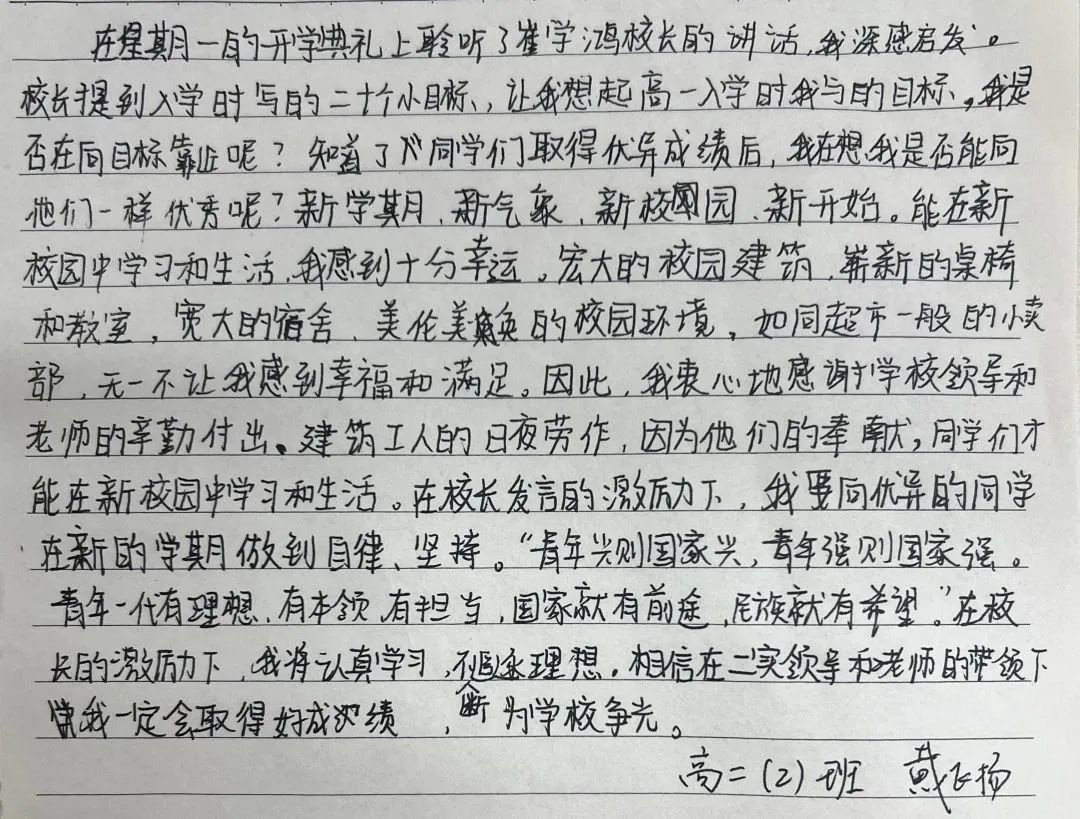 在星期一的开学典礼上聆听了崔学鸿校长的讲话,我深感启发。
校长提到入学时写的二十个小目标,让我想起高一入学时我写的目标,我是
否在向目标靠近呢?知道了八同学们取得优异成绩后,我在想我是否能向
他们一样优秀呢?新学期、新气象、新校园、新开始。能在新
校园中学习和生活,我感到十分幸运。宏大的校园建筑,崭新的桌椅
和教室,宽大的宿舍,美伦美奂的校园环境,如同超市一般的小卖
部,无一不让我感到幸福和满足。因此,我衷心地感谢学校领导和
老师的辛勤付出、建筑工人的日夜劳作,因为他们的奉献,同学们才
能在新校园中学习和生活。在校长发言的激励下,我要向优异的同学
在新的学期做到自律、坚持。“青年兴则国家兴,青年强则国家强。
青年一代有理想,有本领,有担当,国家就有前途,民族就有希望。”在校
长的激励下,我将认真学习,不断追求理想。相信在二实领导和老师的带领下
我一定会取得好成绩,为学校争光。
高二(2)班 戴飞扬